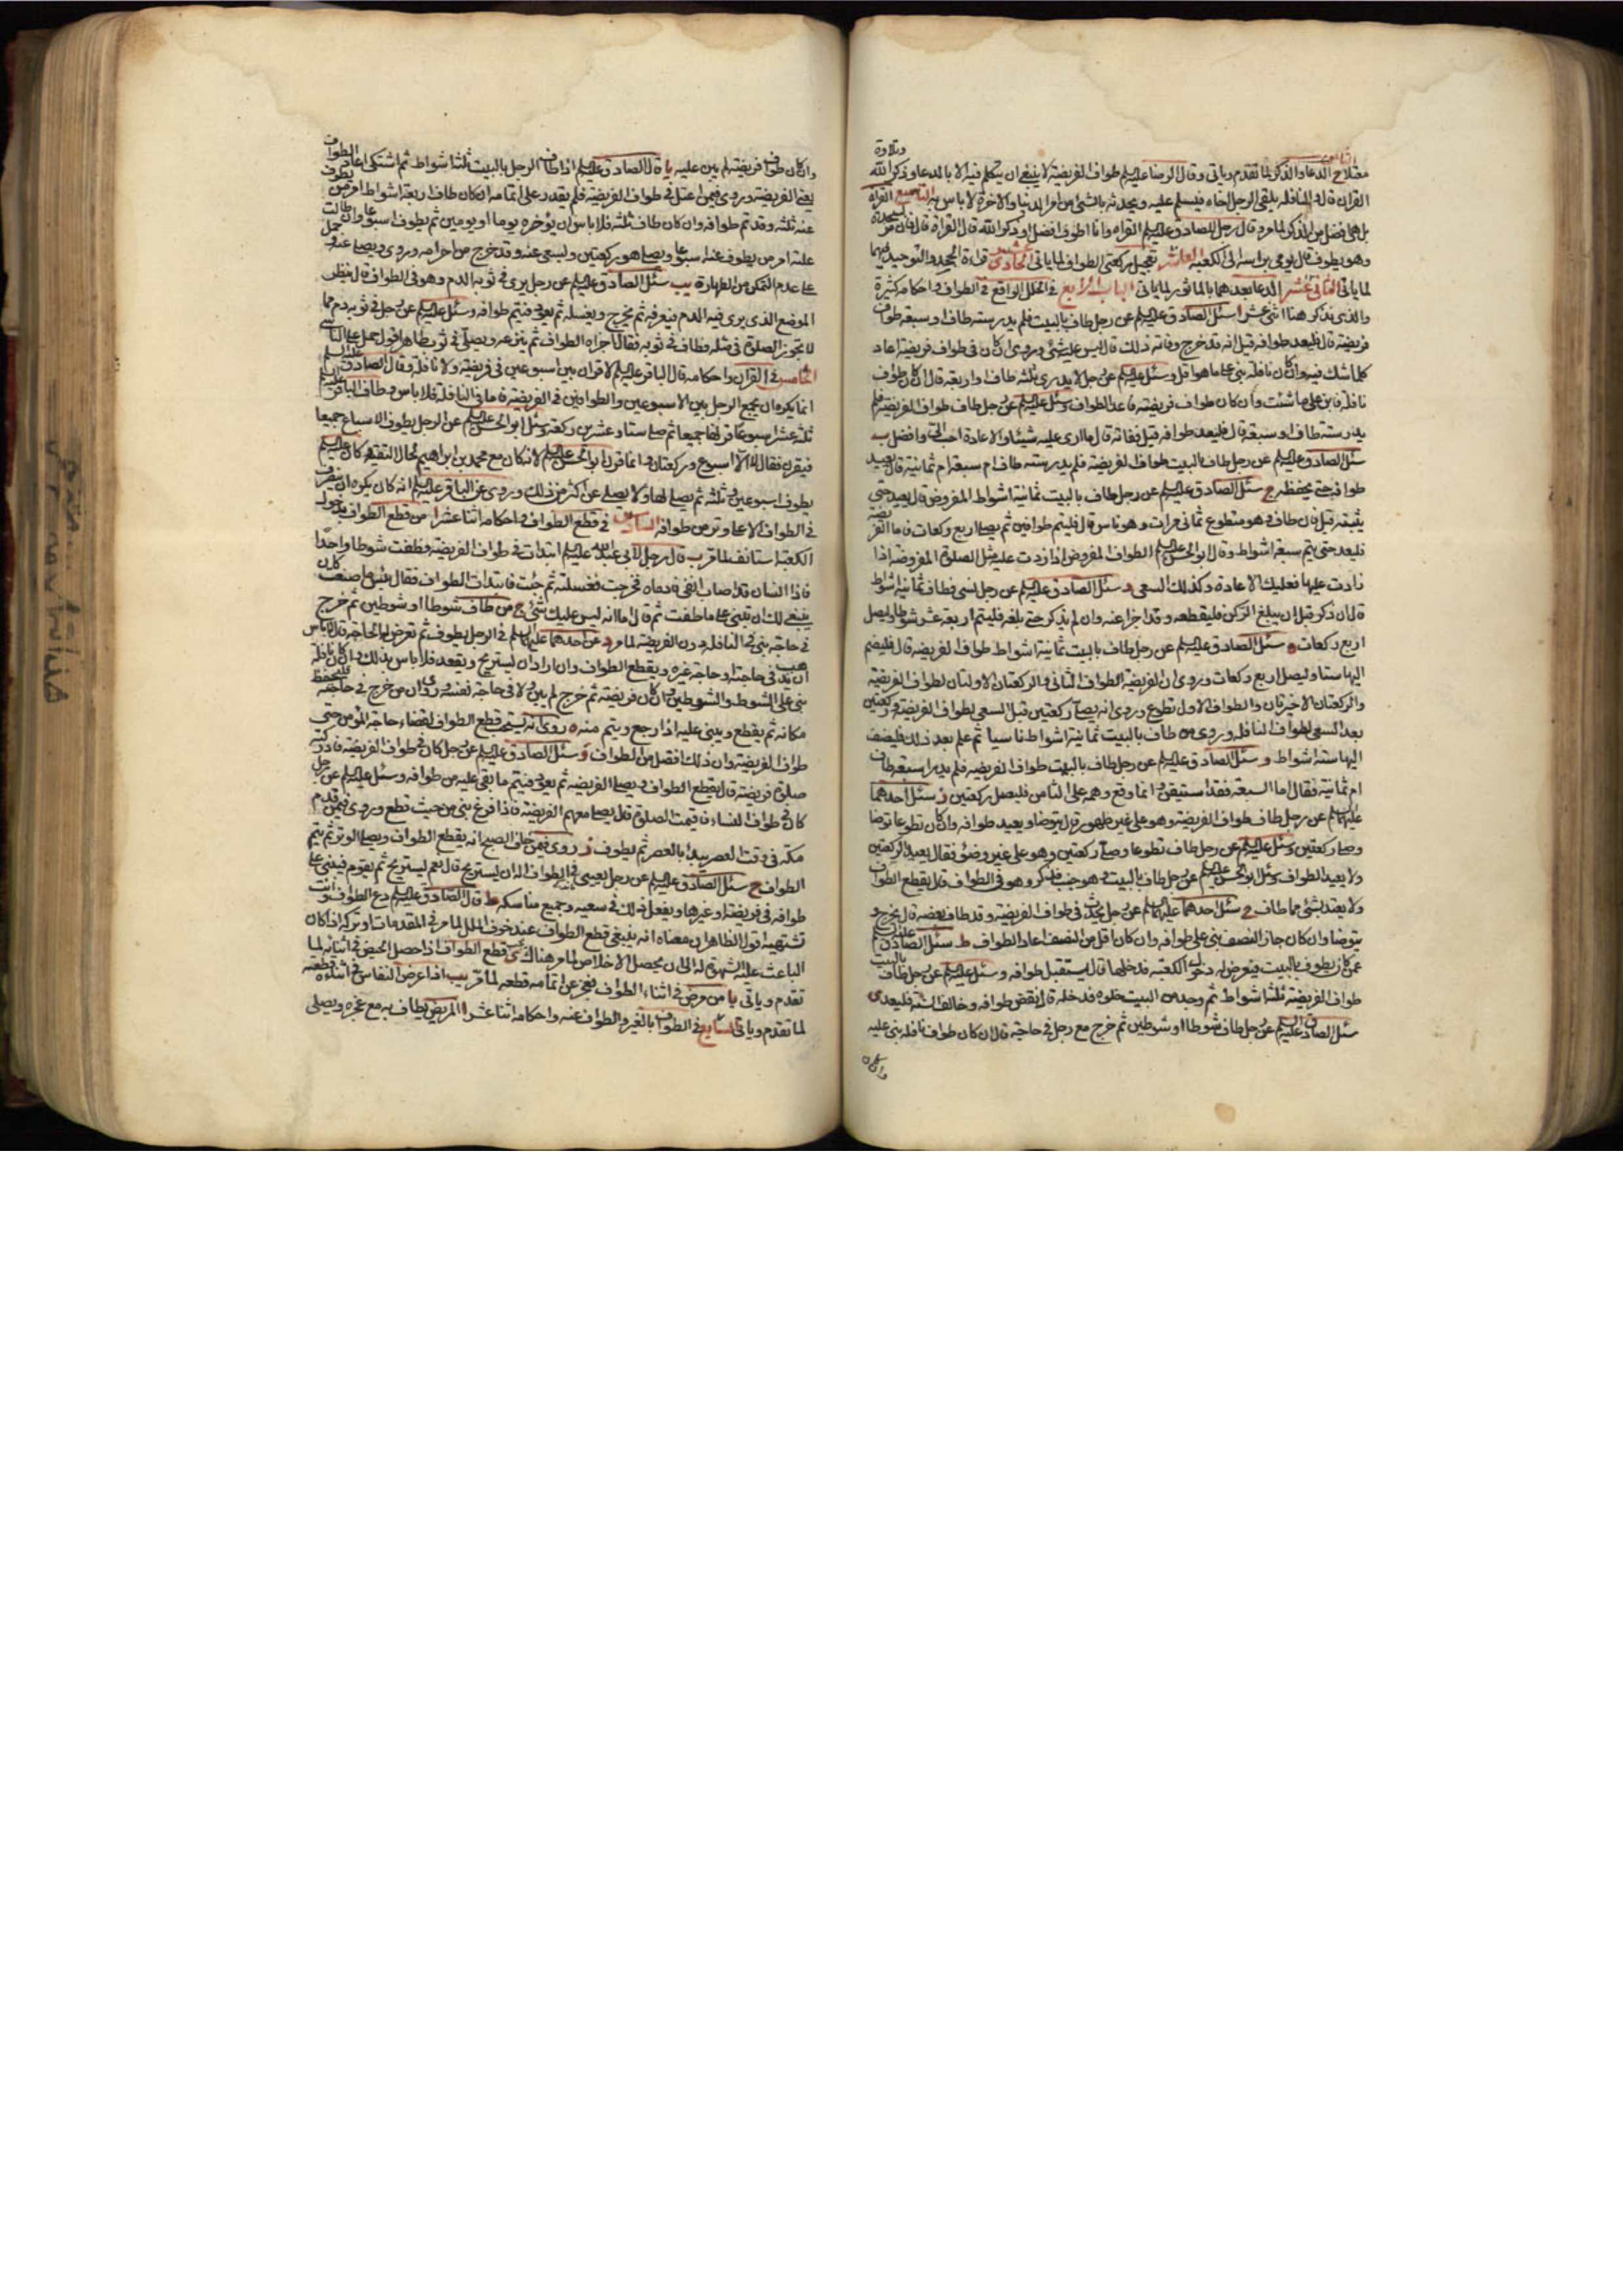 وتلاوة
الثامن الدعا والذكر لما تقدم وياتى وقال الرضا عليه السلم طواف الفريضة لا ينبغى ان يتكلم فيه الا بالدعا وذكر الله
القران قال والنافلة يلقى الرجل اخاه فيسلم عليه ويحدثه بالشئ من امر الدنيا والاخرة لا باس به التاسع القراة
بل هى افضل من الذكر لما مر وقال رجل للصادق عليه السلم القراة وانا اطوف افضل او ذكر الله قال القراة قال فان مر بسجدة
وهو يطوف قال يومى براسه الى الكعبة العاشر تعجيل ركعتى الطواف لما ياتى الحادى عشر قراءة الجحد والتوحيد فيهما
لما ياتى الثانى عشر الدعا بعدهما بالماثور لما ياتى الباب الرابع فى الخلل الواقع فى الطواف واحكامه كثيرة
والذى يذكر هنا اثنى عشر ا سئل الصادق عليه السلم عن رجل طاف بالبيت فلم يدر ستة طاف او سبعة طواف
فريضة قال فليعد طوافه قيل انه قد خرج وفاته ذلك قال ليس عليه شئ وروى ان كان فى طواف فريضة اعاد
كلما شك فيه وان كان نافلة بنى على ما هو اقل وسئل عليه السلم عن رجل لا يدرى ثلثة طاف او اربعة قال ان كان طواف
نافلة فابن على ما شئت وان كان طواف فريضة فاعد الطواف وسئل عليه السلم عن رجل طاف طواف الفريضة فلم
يدر ستة طاف او سبعة قال فليعد طوافه قيل ففاته قال ما ارى عليه شيئا والاعادة احب الى وافضل ب
سئل الصادق عليه السلم عن رجل طاف بالبيت طواف الفريضة فلم يدر ستة طاف ام سبعة ام ثمانية قال يعيد
طوافه حتى يحفظه ج سئل الصادق عليه السلم عن رجل طاف بالبيت ثمانية اشواط المفروض قال يعيد حتى
يثبته قيل فان طاف وهو متطوع ثمانى مرات وهو ناس قال فليتم طوافين ثم يصلى اربع ركعات فاما الفريضة
فليعد حتى يتم سبعة اشواط وقال ابو الحسن عليه السلم الطواف المفروض اذا زدت عليه مثل الصلوة المفروضة اذا
زدت عليها فعليك الاعادة وكذلك السعى د سئل الصادق عليه السلم عن رجل نسى فطاف ثمانية اشواط
قال ان ذكر قبل ان يبلغ الركن فليقطعه وقد اجزا عنه وان لم يذكر حتى بلغه فليتم اربعة عشر شوطا وليصل
اربع ركعات ه سئل الصادق عليه السلم عن رجل طاف بالبيت ثمانية اشواط طواف الفريضة قال فليضم
اليها ستا وليصل اربع ركعات وروى ان الفريضة الطواف الثانى والركعتان الاولتان لطواف الفريضة
والركعتان الاخيرتان والطواف الاول تطوع وروى انه يصلى ركعتين قبل السعى لطواف الفريضة وركعتين
بعد السعى لطواف النافلة وروى من طاف بالبيت ثمانية اشواط ناسيا ثم علم بعد ذلك فليضف
اليها ستة اشواط و سئل الصادق عليه السلم عن رجل طاف بالبيت طواف الفريضة فلم يدر اسبعة طاف
ام ثمانية فقال اما السبعة فقد استيقن وانما وقع وهمه على الثامن فليصل ركعتين ز سئل احدهما
عليهما السلم عن رجل طاف طواف الفريضة وهو على غير طهور قال يتوضا ويعيد طوافه وان كان تطوعا توضا
وصلى ركعتين وسئل عليه السلم عن رجل طاف تطوعا وصلى ركعتين وهو على غير وضوء فقال يعيد الركعتين
ولا يعيد الطواف وسئل ابو الحسن عليه السلم عن رجل طاف بالبيت وهو جنب فذكر وهو فى الطواف قال يقطع الطواف
ولا يعتد بشئ مما طاف ح سئل احدهما عليهما السلم عن رجل يحدث فى طواف الفريضة وقد طاف بعضه قال يخرج و
يتوضا وان كان جاز النصف بنى على طوافه وان كان اقل من النصف اعاد الطواف ط سئل الصادق عليه السلم
عمن كان يطوف بالبيت فيعرض له دخول الكعبة فدخلها قال يستقبل طوافه وسئل عليه السلم عن رجل طاف بالبيت
طواف الفريضة ثلثة اشواط ثم وجد من البيت خلوة فدخله قال نقض طوافه وخالف السنة فليعد ى
سئل الصادق عليه السلم عن رجل طاف شوطا او شوطين ثم خرج مع رجل فى حاجة قال ان كان طواف نافلة بنى عليه
وان كان
وان كان طواف فريضة لم يبن عليه يا قال الصادق عليه السلم اذا طاف الرجل بالبيت ثلثة اشواط ثم اشتكى اعاد الطواف
يعنى الفريضة وروى فيمن اعتل فى طواف الفريضة فلم يقدر على اتمامه ان كان طاف اربعة اشواط امر من يطوف
عنه ثلثة وقد تم طوافه وان كان طاف ثلثة فلا باس ان يؤخره يوما او يومين ثم يطوف اسبوعا وان طالت
علته امر من يطوف عنه اسبوعا ويصلى هو ركعتين ويسعى عنه وقد خرج من احرامه وروى ويصلى عنه وحمل
على عدم التمكن من الطهارة يب سئل الصادق عليه السلم عن رجل يرى فى ثوبه الدم وهو فى الطواف قال ينظر
الموضع الذى يرى فيه الدم فيعرفه ثم يخرج ويغسله ثم يعود فيتم طوافه وسئل عليه السلم عن رجل فى ثوبه دم مما
لا تجوز الصلوة فى مثله فطاف فى ثوبه فقال اجزاه الطواف ثم ينزعه ويصلى فى ثوب طاهر اقول حمل على الناسى
الخامس فى القران واحكامه قال الباقر عليه السلم لا قران بين اسبوعين فى فريضة ولا نافلة وقال الصادق عليه السلم
انما يكره ان يجمع الرجل بين الاسبوعين والطوافين فى الفريضة فاما فى النافلة فلا باس وطاف الباقر عليه السلم
ثلثة عشر اسبوعا قرنها جميعا ثم صلى ستا وعشرين ركعة وسئل ابو الحسن عليه السلم عن الرجل يطوف الاسباع جميعا
فيقرن فقال لا الا اسبوع وركعتان وانما قرن ابو الحسن عليه السلم لانه كان مع محمد بن ابراهيم لحال التقية وكان عليه السلم
يطوف اسبوعين وثلثة ثم يصلى لها ولا يصلى عن اكثر من ذلك وروى عن الباقر عليه السلم انه كان يكره ان ينصرف
فى الطواف الا على وتر من طوافه السادس فى قطع الطواف واحكامه اثنا عشر ا من قطع الطواف بدخول
الكعبة استانف لما مر ب قال رجل لابى عبد الله عليه السلم ابتدات فى طواف الفريضة فطفت شوطا واحدا
فاذا انسان قد اصاب انفى فادماه فخرجت فغسلته ثم جئت فابتدات الطواف فقال بئس ما صنعت كان
ينبغى لك ان تبنى على ما طفت ثم قال اما انه ليس عليك شئ ج من طاف شوطا او شوطين ثم خرج
فى حاجة بنى فى النافلة دون الفريضة لما مر د عن احدهما عليهما السلم فى الرجل يطوف ثم تعرض له الحاجة قال لا باس
ان يذهب فى حاجته او حاجة غيره ويقطع الطواف وان اراد ان يستريح ويقعد فلا باس بذلك وان كان نافلة
بنى على الشوط والشوطين وان كان فريضة ثم خرج لم يبن ولا فى حاجة نفسه وروى ان من خرج فى حاجة فليحفظ
مكانه ثم يقطع ويبنى عليه اذا رجع ويتم منه ه روى انه يستحب قطع الطواف لقضاء حاجة المؤمن حتى
طواف الفريضة وان ذلك افضل من الطواف و سئل الصادق عليه السلم عن رجل كان فى طواف الفريضة فادركته
صلوة فريضة قال يقطع الطواف ويصلى الفريضة ثم يعود فيتم ما بقى عليه من طوافه وسئل عليه السلم عن رجل
كان فى طواف النساء فاقيمت الصلوة قال يصلى معهم الفريضة فاذا فرغ بنى من حيث قطع وروى فيمن قدم
مكة فى وقت العصر يبدا بالعصر ثم يطوف ز روى فيمن خاف الصبح انه يقطع الطواف ويصلى الوتر ثم يتم
الطواف ح سئل الصادق عليه السلم عن رجل يعيى فى الطواف اله ان يستريح قال نعم يستريح ثم يقوم فيبنى على
طوافه فى فريضة او غيرها ويفعل ذلك فى سعيه وجميع مناسكه ط قال الصادق عليه السلم دع الطواف وانت
تشتهيه اقول الظاهر ان معناه انه ينبغى قطع الطواف عند خوف الملل لما مر فى المقدمات او تركه اذا كان
الباعث عليه الشهوة له الى ان يحصل الاخلاص لما مر هناك ى يجب قطع الطواف اذا حصل الحيض فى اثنائه لما
تقدم وياتى يا من مرض فى اثناء الطواف فعجز عن اتمامه قطعه لما مر يب اذا عرض النفاس فى اثناءه قطعته
لما تقدم وياتى السابع فى الطواف بالغير والطواف عنه واحكامه اثنا عشر ا المريض يطاف به مع عجزه ويصلى